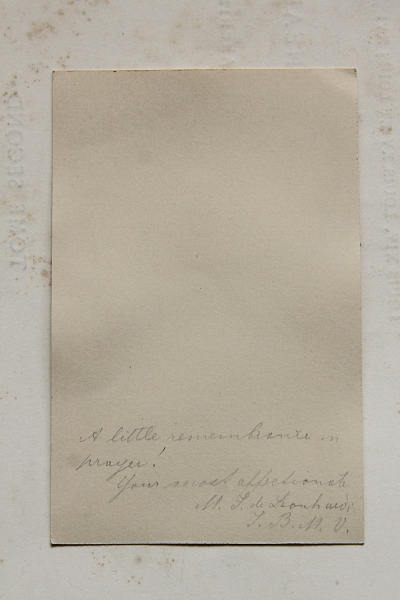 A little remembrance in
prayer!
Your most affectionate
M. S. de Leonhardi
I. B. M. V.
TOME SECOND